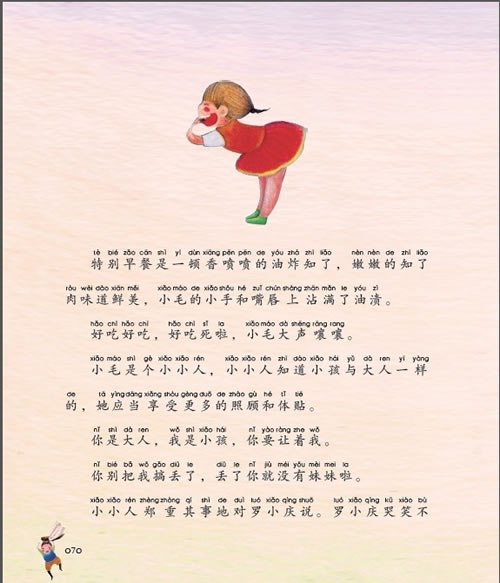 tè bié zǎo cān shì yí dùn xiāng pēn pēn de yóu zhá zhī liǎo nèn nèn de zhī liǎo
特别早餐是一顿香喷喷的油炸知了，嫩嫩的知了
ròu wèi dào xiān měi xiǎo máo de xiǎo shǒu hé zuǐ chún shàng zhān mǎn le yóu zì
肉味道鲜美，小毛的小手和嘴唇上沾满了油渍。
hǎo chī hǎo chī hǎo chī sǐ la xiǎo máo dà shēng rāng rang
好吃好吃，好吃死啦，小毛大声嚷嚷。
xiǎo máo shì gè xiǎo xiǎo rén xiǎo xiǎo rén zhī dào xiǎo hái yǔ dà ren yí yàng
小毛是个小小人，小小人知道小孩与大人一样
de tā yīng dāng xiǎng shòu gèng duō de zhào gù hé tǐ tiē
的，她应当享受更多的照顾和体贴。
nǐ shì dà ren wǒ shì xiǎo hái nǐ yào ràng zhe wǒ
你是大人，我是小孩，你要让着我。
nǐ bié bǎ wǒ gǎo diū le diū le nǐ jiù méi yǒu mèi mei la
你别把我搞丢了，丢了你就没有妹妹啦。
xiǎo xiǎo rén zhèng zhòng qí shì de duì luó xiǎo qìng shuō luó xiǎo qìng kū xiào bù
小小人郑重其事地对罗小庆说。罗小庆哭笑不
070